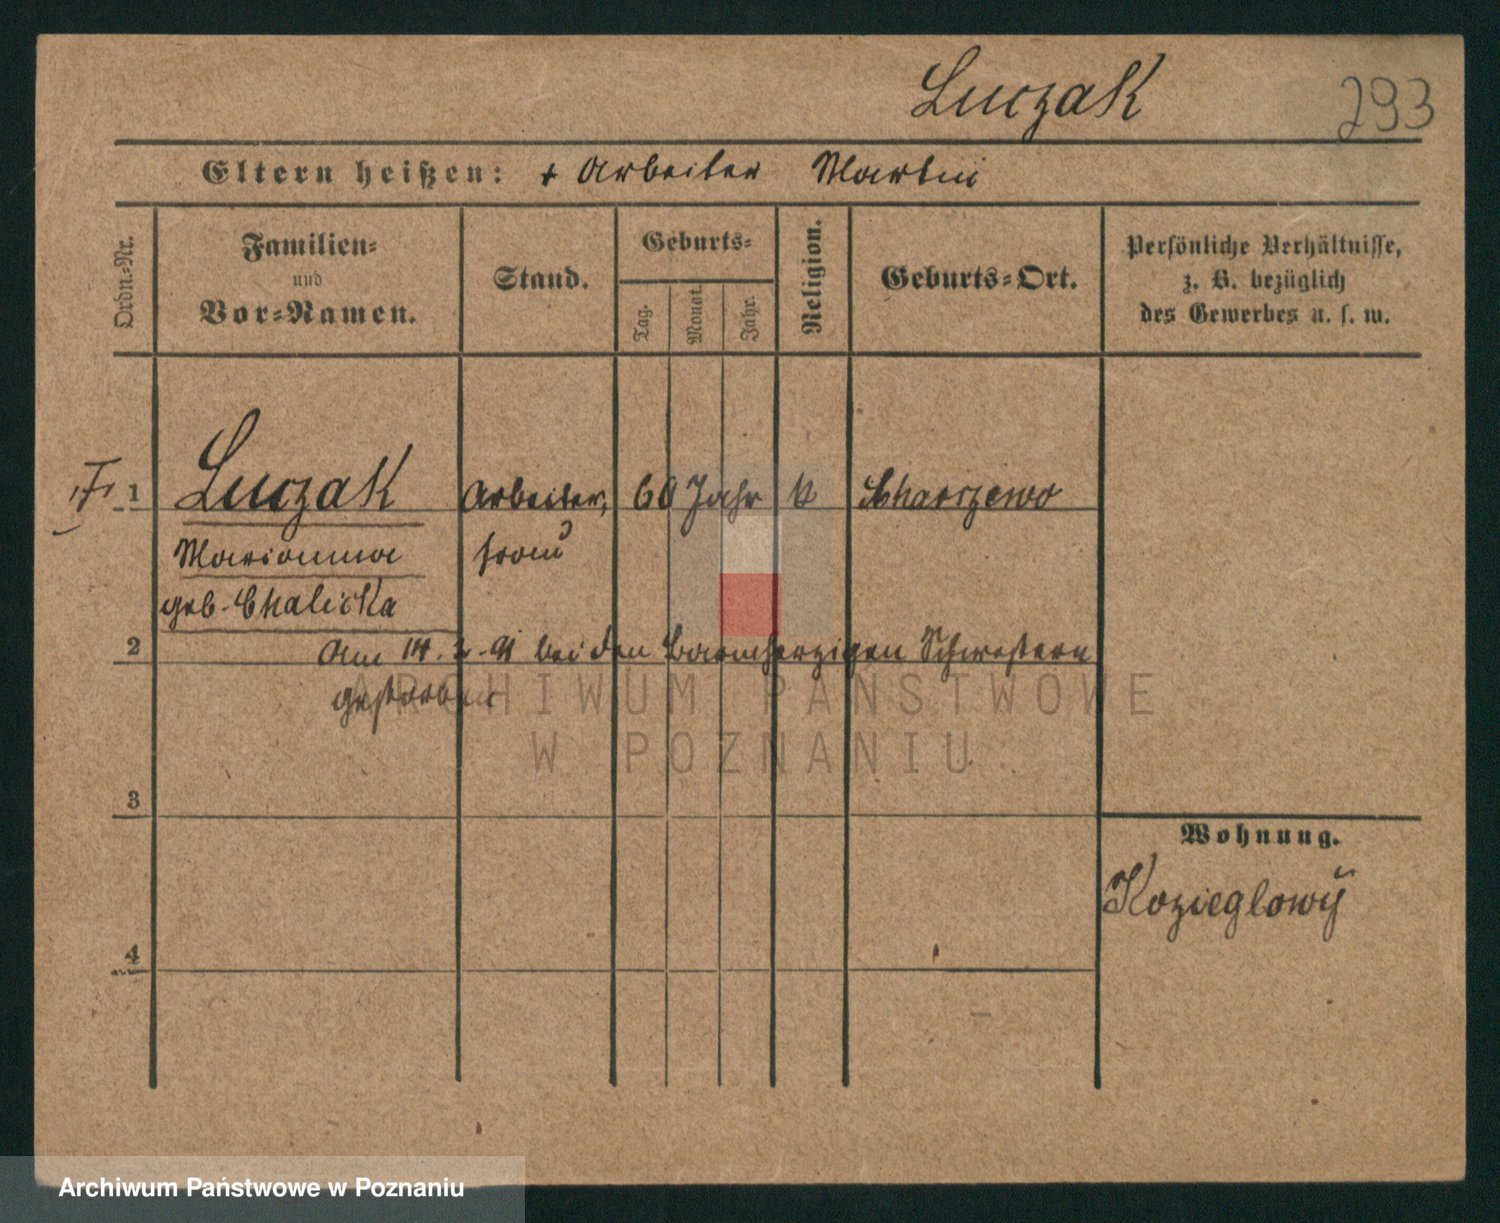 Luczak
293
Eltern heißen: + Arbeiter Martin
Ordn.-Nr.
Familien-
und
Vor-Namen.
Stand.
Geburts-
Tag.
Monat.
Jahr.
Religion.
Geburts-Ort.
Persönliche Verhältnisse,
z. B. bezüglich
des Gewerbes u. s. w.
1 Luczak Arbeiter, 60 Jahr k
Marianna frau
geb. Chalicka
2 Am 14. 2. 91 bei den Barmherzigen Schwestern
gestorben
ARCHIWUM PAŃSTWOWE
W POZNANIU
3
Wohnung.
Kozieglowÿ
4
Archiwum Państwowe w Poznaniu